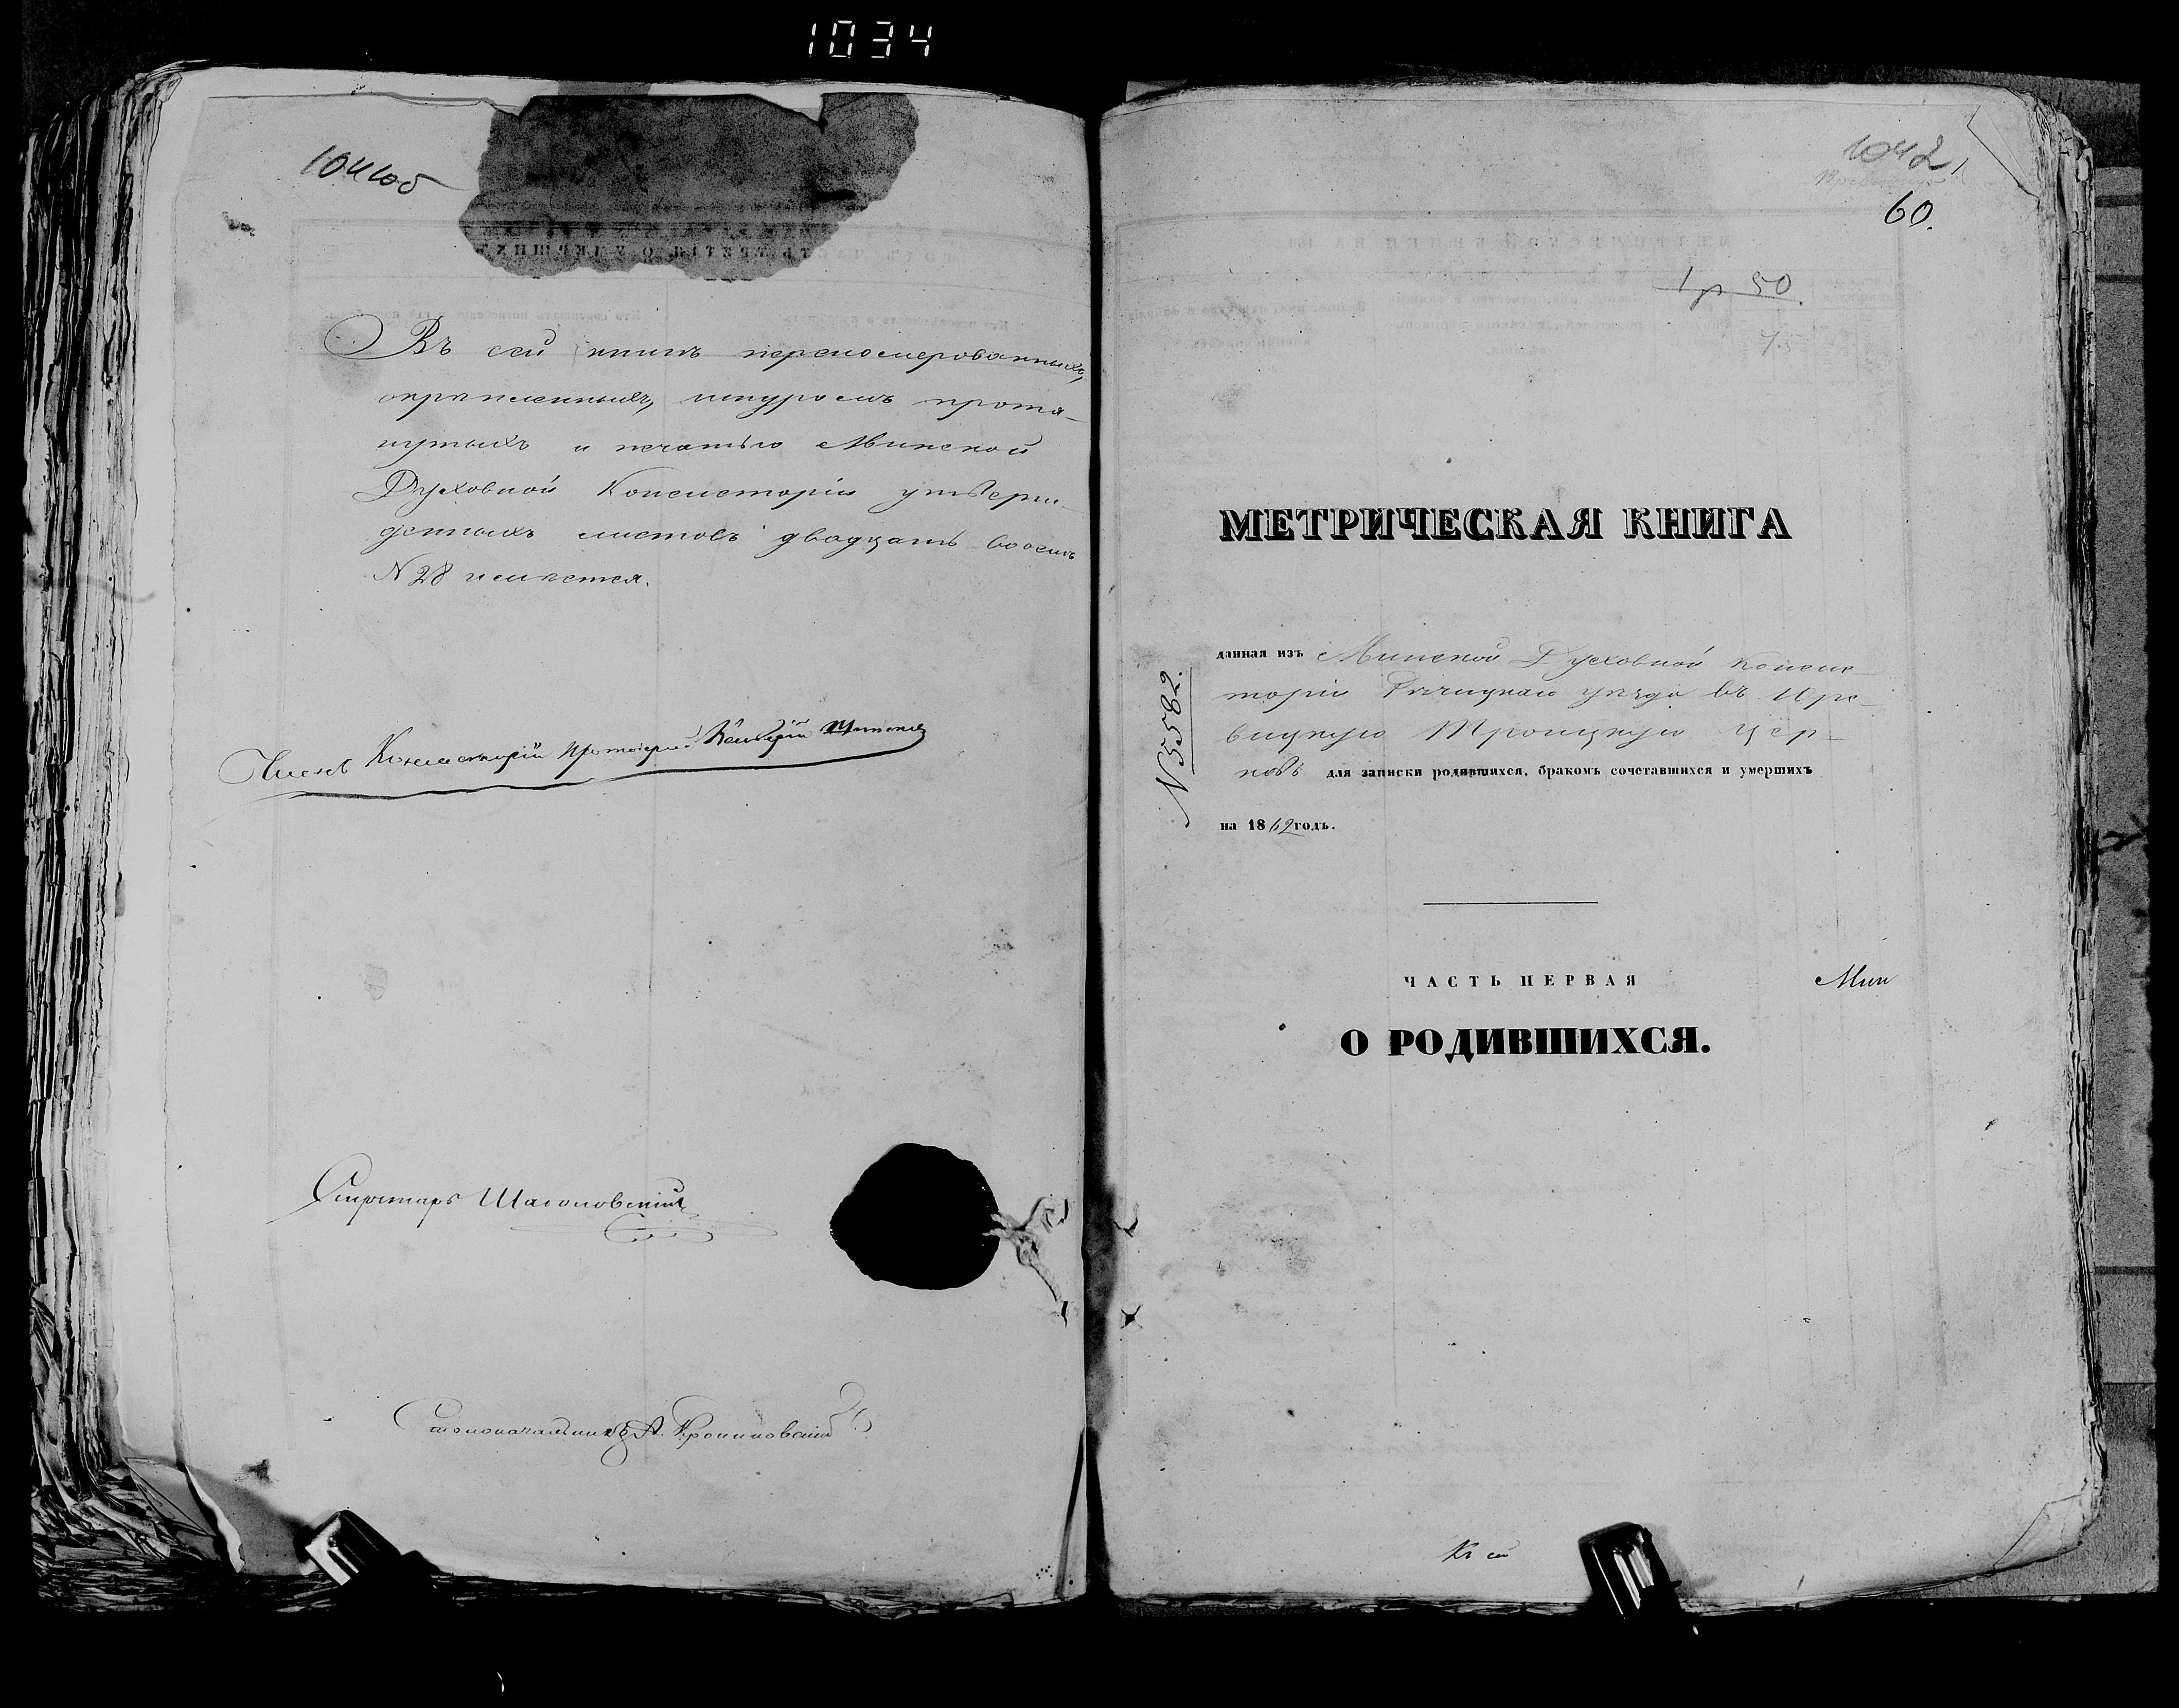 1034
1041об
Въ сей книгѣ переномерованныхъ,
скрѣпленныхъ, шнуромъ протя-
нутыхъ и печатью Минской
Духовной Консисторіи утверж-
денныхъ листовъ двадцать восемь
№ 28 имѣется.
Членъ Консисторіи Протоіерей
Секретарь
Столоначальникъ А.
1042
60.
1 р 50.
75
МЕТРИЧЕСКАЯ КНИГА
№ 5582.
данная изъ Минской Духовной Консис-
торіи Рѣчицкаго уѣзда въ Юре-
вицкую Троицкую цер-
ковь для записки родившихся, бракомъ сочетавшихся и умершихъ
на 1862 годъ.
ЧАСТЬ ПЕРВАЯ
Мин
О РОДИВШИХСЯ.
Къ сей